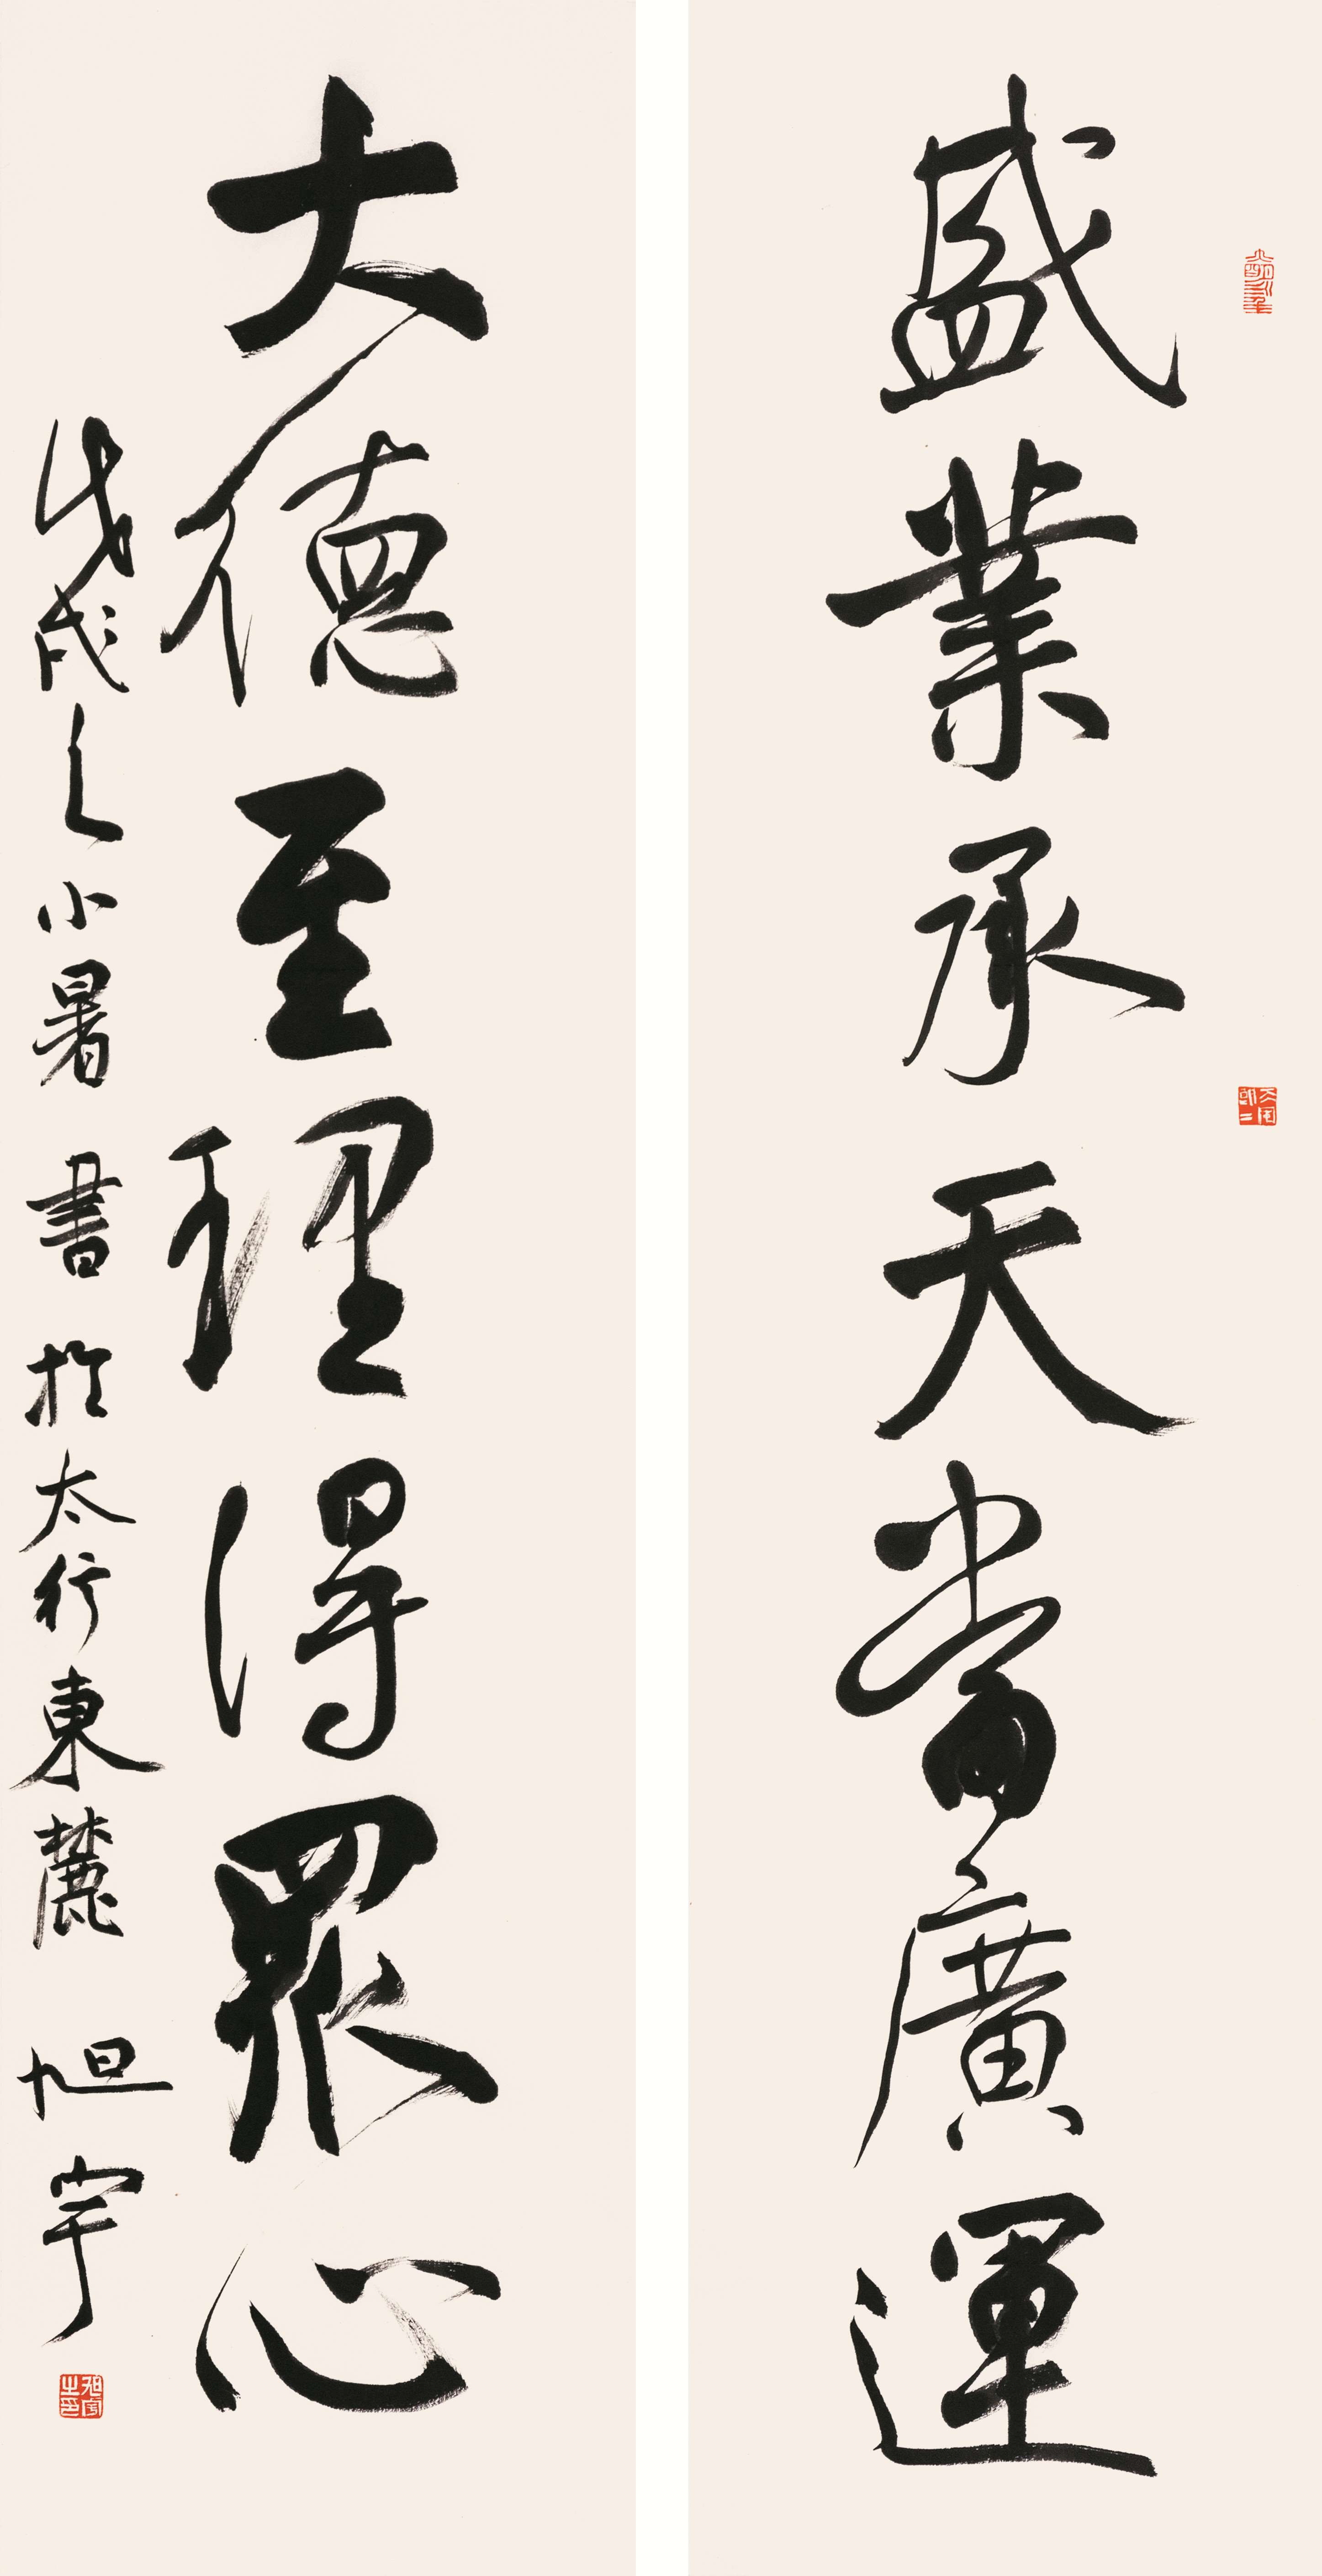 盛業承天常廣運
大德至理得眾心
戊戌之小暑書於太行東麓旭宇
旭宇之印